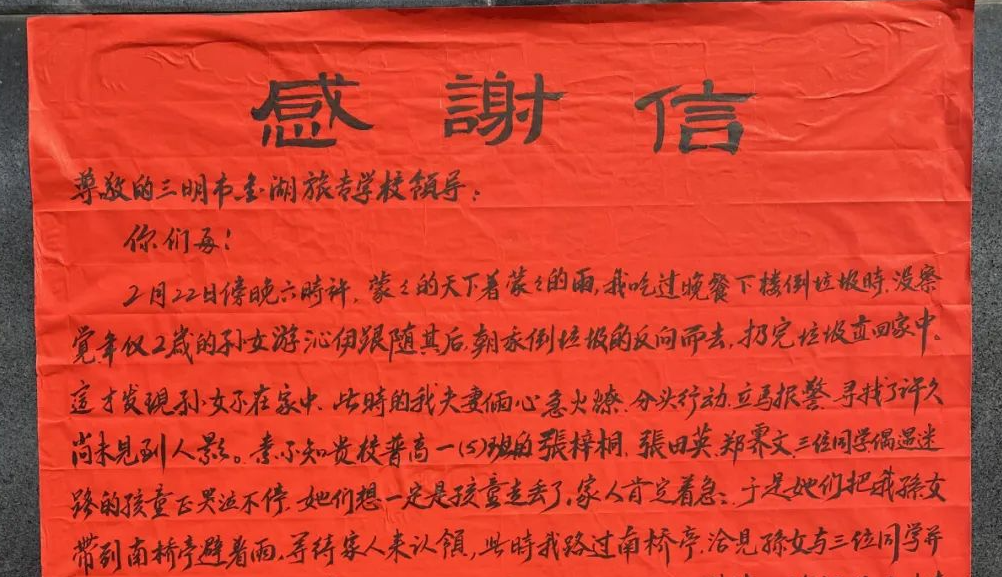 感 謝 信
尊敬的三明市金湖旅专学校領导:
你们好!
2月22日傍晚六時許,蒙々的天下着蒙々的雨,我吃过晚餐下楼倒垃圾時,没察
覚年仅2歳的孙女游沁伊跟随其后,朝我倒垃圾的反向而去,扔完垃圾直回家中。
這才发現孙女不在家中,此時的我夫妻俩心急火燎.分头行动.立馬报警.寻找了许久
尚未見到人影。素不知贵校普高一(5)班的張梓桐.張田英.郑霁文.三位同学偶遇迷
路的孩童正哭泣不停.她们想一定是孩童走丢了,家人肯定着急.于是她们把我孫女
帶到南桥亭避着雨.等待家人来认領,此時我路过南桥亭,洽見孫女与三位同学并